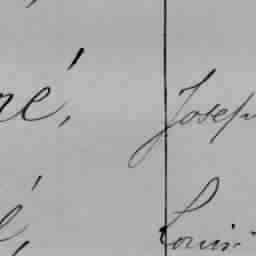 né, Joseph
é, Louis